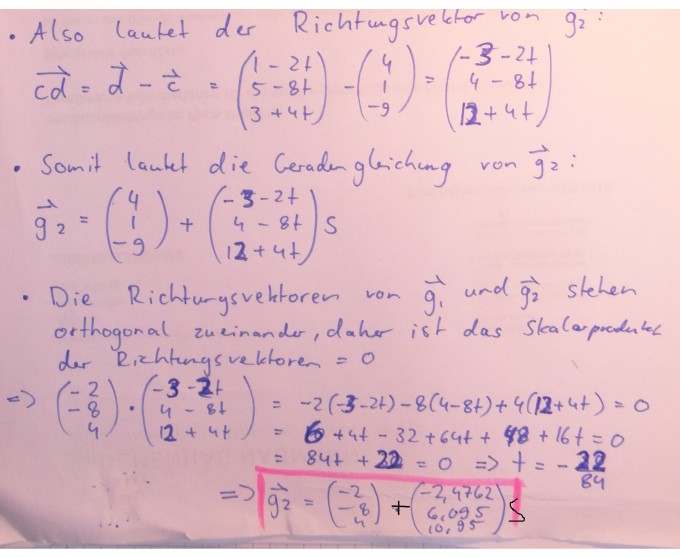 • Also lautet der Richtungsvektor von g₂:
cd⃗ = d⃗ - c⃗ = (1 - 2t, 5 - 8t, 3 + 4t) - (4, 1, -9) = (-3 - 2t, 4 - 8t, 12 + 4t)
• Somit lautet die Geradengleichung von g⃗₂:
g⃗₂ = (4, 1, -9) + (-3 - 2t, 4 - 8t, 12 + 4t) s
• Die Richtungsvektoren von g⃗₁ und g⃗₂ stehen
orthogonal zueinander, daher ist das Skalarprodukt
der Richtungsvektoren = 0
=> (-2, -8, 4) · (-3 - 2t, 4 - 8t, 12 + 4t) = -2(-3-2t) - 8(4-8t) + 4(12+4t) = 0
= 6 + 4t - 32 + 64t + 48 + 16t = 0
= 84t + 22 = 0 => t = - 22/84
=> g⃗₂ = (-2, -8, 4) + (-2,4762, 6,095, 10,95) s